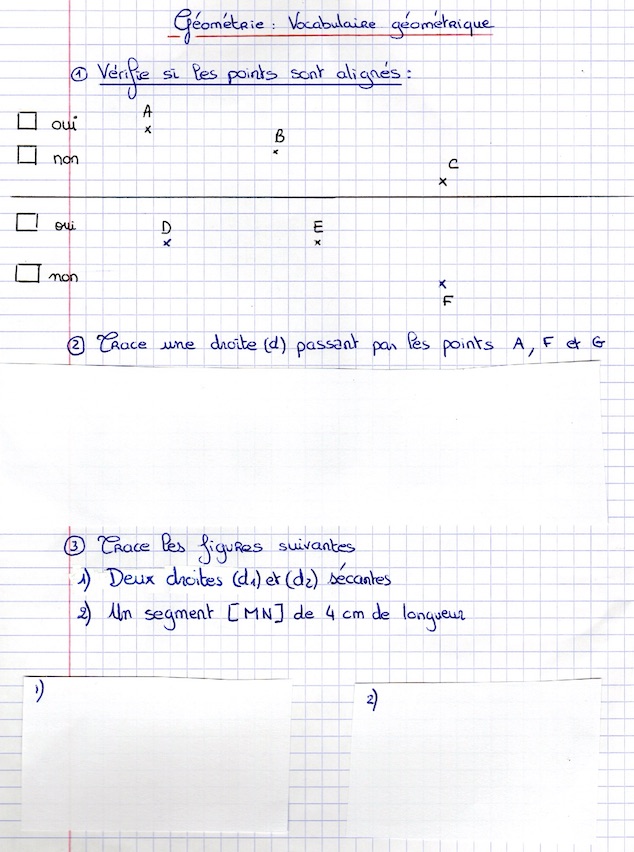 Géométrie : Vocabulaire géométrique
① Vérifie si les points sont alignés :
A
oui
B
non
C
oui
D
E
non
F
② Trace une droite (d) passant par les points A, F et G
③ Trace les figures suivantes
1) Deux droites (d1) et (d2) sécantes
2) Un segment [MN] de 4 cm de longueur
1)
2)